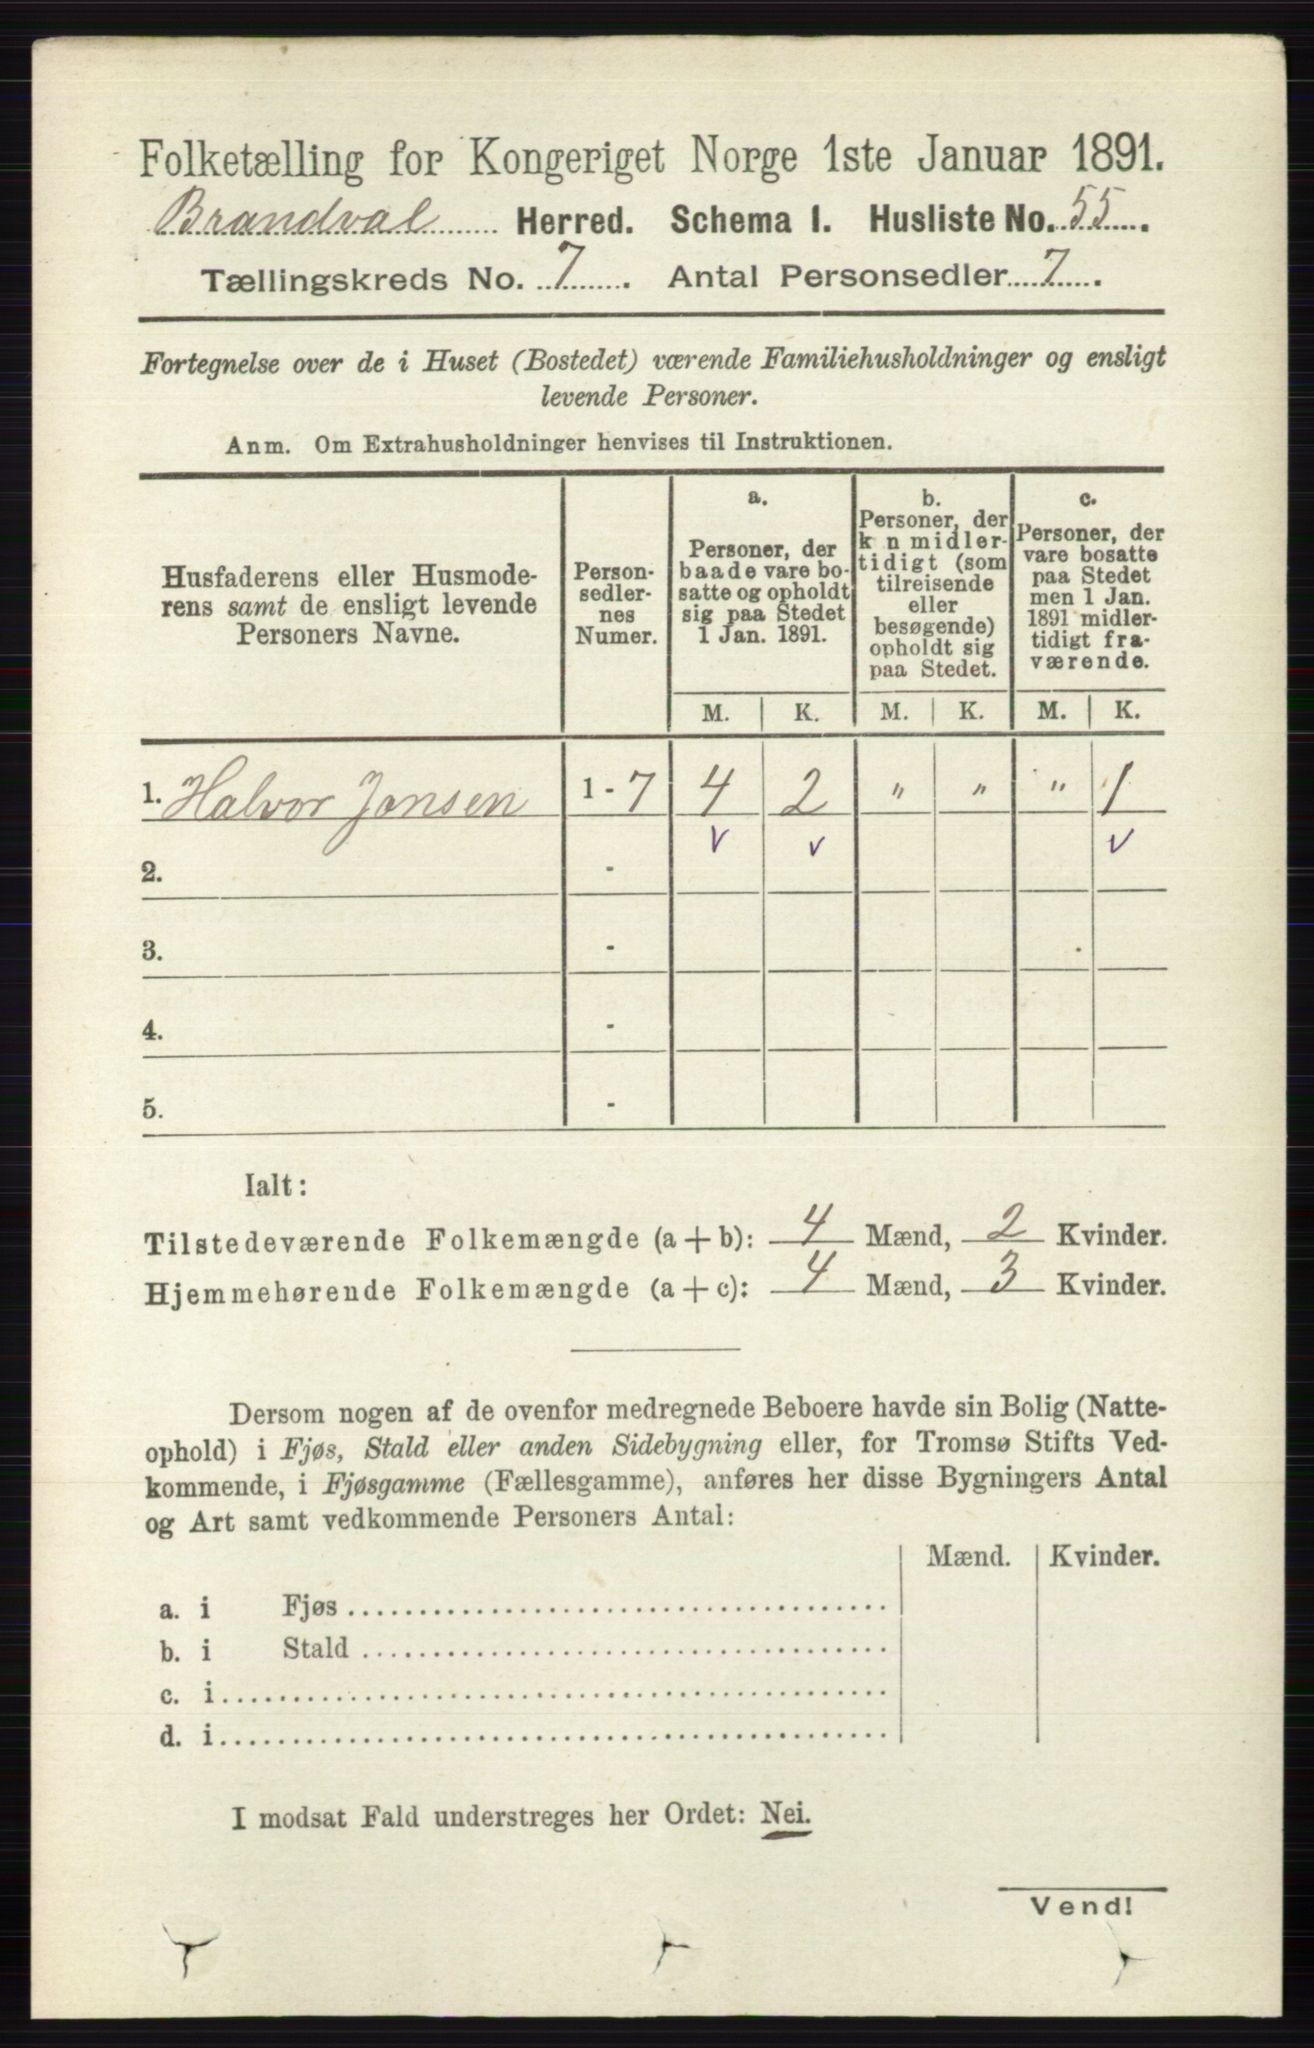 Folketælling for Kongeriget Norge 1ste Januar 1891.
Brandval Herred. Schema I. Husliste No. 55.
Tællingskreds No. 7. Antal Personsedler 7.
Fortegnelse over de i Huset (Bostedet) værende Familiehusholdninger og ensligt
levende Personer.
Anm. Om Extrahusholdninger henvises til Instruktionen.
Husfaderens eller Husmode-
rens samt de ensligt levende
Personers Navne.
Person-
sedler-
nes
Numer.
a.
Personer, der
baade vare bo-
satte og opholdt
sig paa Stedet
1 Jan. 1891.
b.
Personer, der
k n midler-
tidigt (som
tilreisende
eller
besøgende)
opholdt sig
paa Stedet.
c.
Personer, der
vare bosatte
paa Stedet
men 1 Jan.
1891 midler-
tidigt fra-
værende.
M. K. M. K. M. K.
1. Halvor Jonsen 1 - 7 4 2 " " " 1
v v v
2. -
3. -
4. -
5. -
Ialt:
Tilstedeværende Folkemængde (a + b): 4 Mænd, 2 Kvinder.
Hjemmehørende Folkemængde (a + c): 4 Mænd, 3 Kvinder.
Dersom nogen af de ovenfor medregnede Beboere havde sin Bolig (Natte-
ophold) i Fjøs, Stald eller anden Sidebygning eller, for Tromsø Stifts Ved-
kommende, i Fjøsgamme (Fællesgamme), anføres her disse Bygningers Antal
og Art samt vedkommende Personers Antal:
Mænd. Kvinder.
a. i Fjøs
b. i Stald
c. i
d. i
I modsat Fald understreges her Ordet: Nei.
Vend!